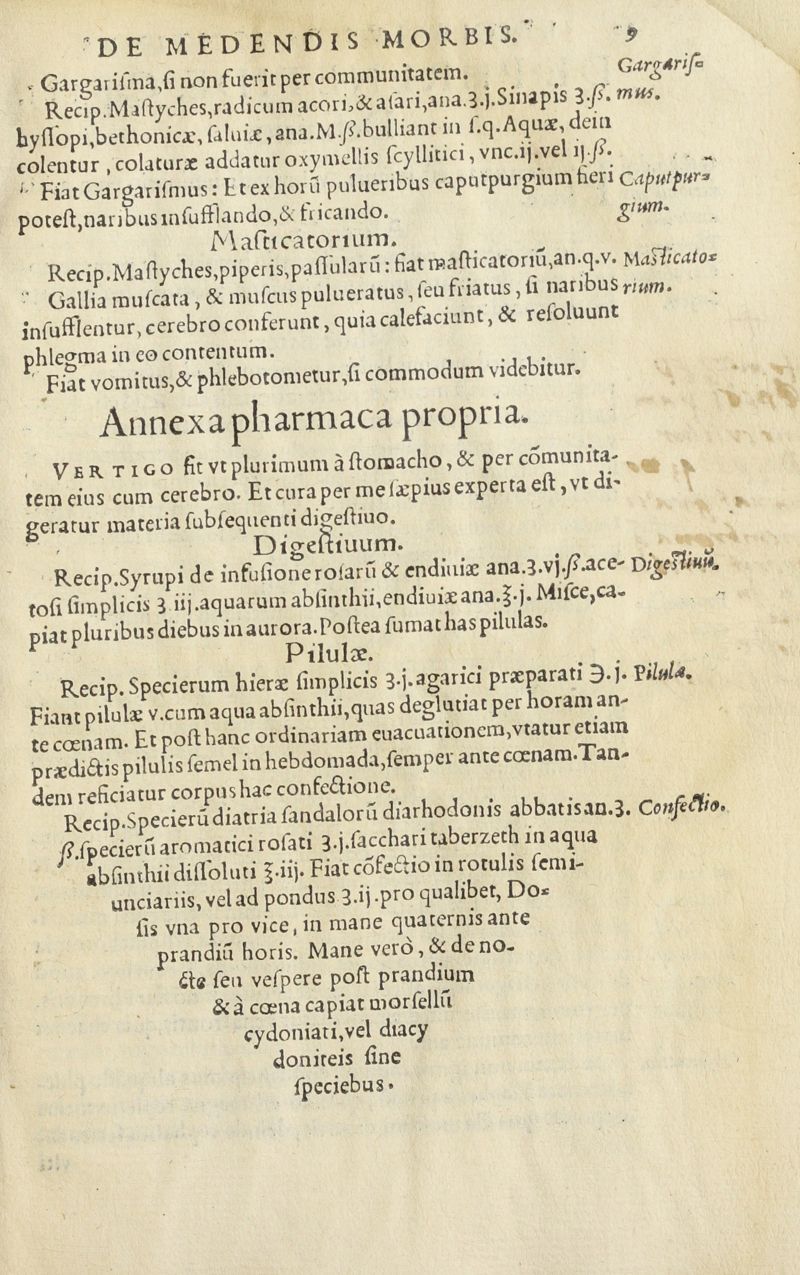 DE MEDENDIS MORBIS. 9
Gargariſma, ſi non fuerit per communitatem.
Gargariſ-
Recip. Maſtyches, radicum acori, & aſari, ana. ʒ. j. Sinapis ʒ. ß.
mus.
hyſſopi, bethonicæ, ſaluiæ, ana. M. ß. bulliant in ſ. q. Aquæ, dein
colentur, colaturæ addatur oxymellis ſcyllitici, vnc. ij. vel ij. ß.
Fiat Gargariſmus: Et ex horū pulueribus caputpurgium fieri
Caputpur-
poteſt, naribus inſufflando, & fricando.
gium.
Maſticatorium.
Recip. Maſtyches, piperis, paſſularū: fiat maſticatoriū, an. q. v.
Maſticato-
Gallia muſcata, & muſcus pulueratus, ſeu friatus, ſi naribus
rium.
inſufflentur, cerebro conferunt, quia calefaciunt, & reſoluunt
phlegma in eo contentum.
Fiat vomitus, & phlebotometur, ſi commodum videbitur.
Annexa pharmaca propria.
VERTIGO fit vt plurimum à ſtomacho, & per cōmunita-
tem eius cum cerebro. Et cura per me ſæpius experta eſt, vt di-
geratur materia ſubſequenti digeſtiuo.
Digeſtiuum.
Recip. Syrupi de infuſione roſarū & endiuiæ ana. ʒ. vj. ß. ace-
Digeſtiuū.
toſi ſimplicis ʒ iij. aquarum abſinthii, endiuiæ ana. ℥. j. Miſce, ca-
piat pluribus diebus in aurora. Poſtea ſumat has pilulas.
Pilulæ.
Recip. Specierum hieræ ſimplicis ʒ. j. agarici præparati ℈. j.
Pilulæ.
Fiant pilulæ v. cum aqua abſinthii, quas deglutiat per horam an-
te cœnam. Et poſt hanc ordinariam euacuationem, vtatur etiam
prædictis pilulis ſemel in hebdomada, ſemper ante cœnam. Tan-
dem reficiatur corpus hac confectione.
Recip. Specierū diatria ſandalorū diarhodonis abbatis an. ʒ.
Confectio.
ß. ſpecierū aromatici roſati ʒ. j. ſacchari taberzeth in aqua
abſinthii diſſoluti ℥. iij. Fiat cōfectio in rotulis ſemi-
unciariis, vel ad pondus ʒ. ij. pro qualibet, Do-
ſis vna pro vice, in mane quaternis ante
prandiū horis. Mane verò, & de no-
cte ſeu veſpere poſt prandium
& à cœna capiat morſellū
cydoniati, vel diacy
doniteis ſine
ſpeciebus.